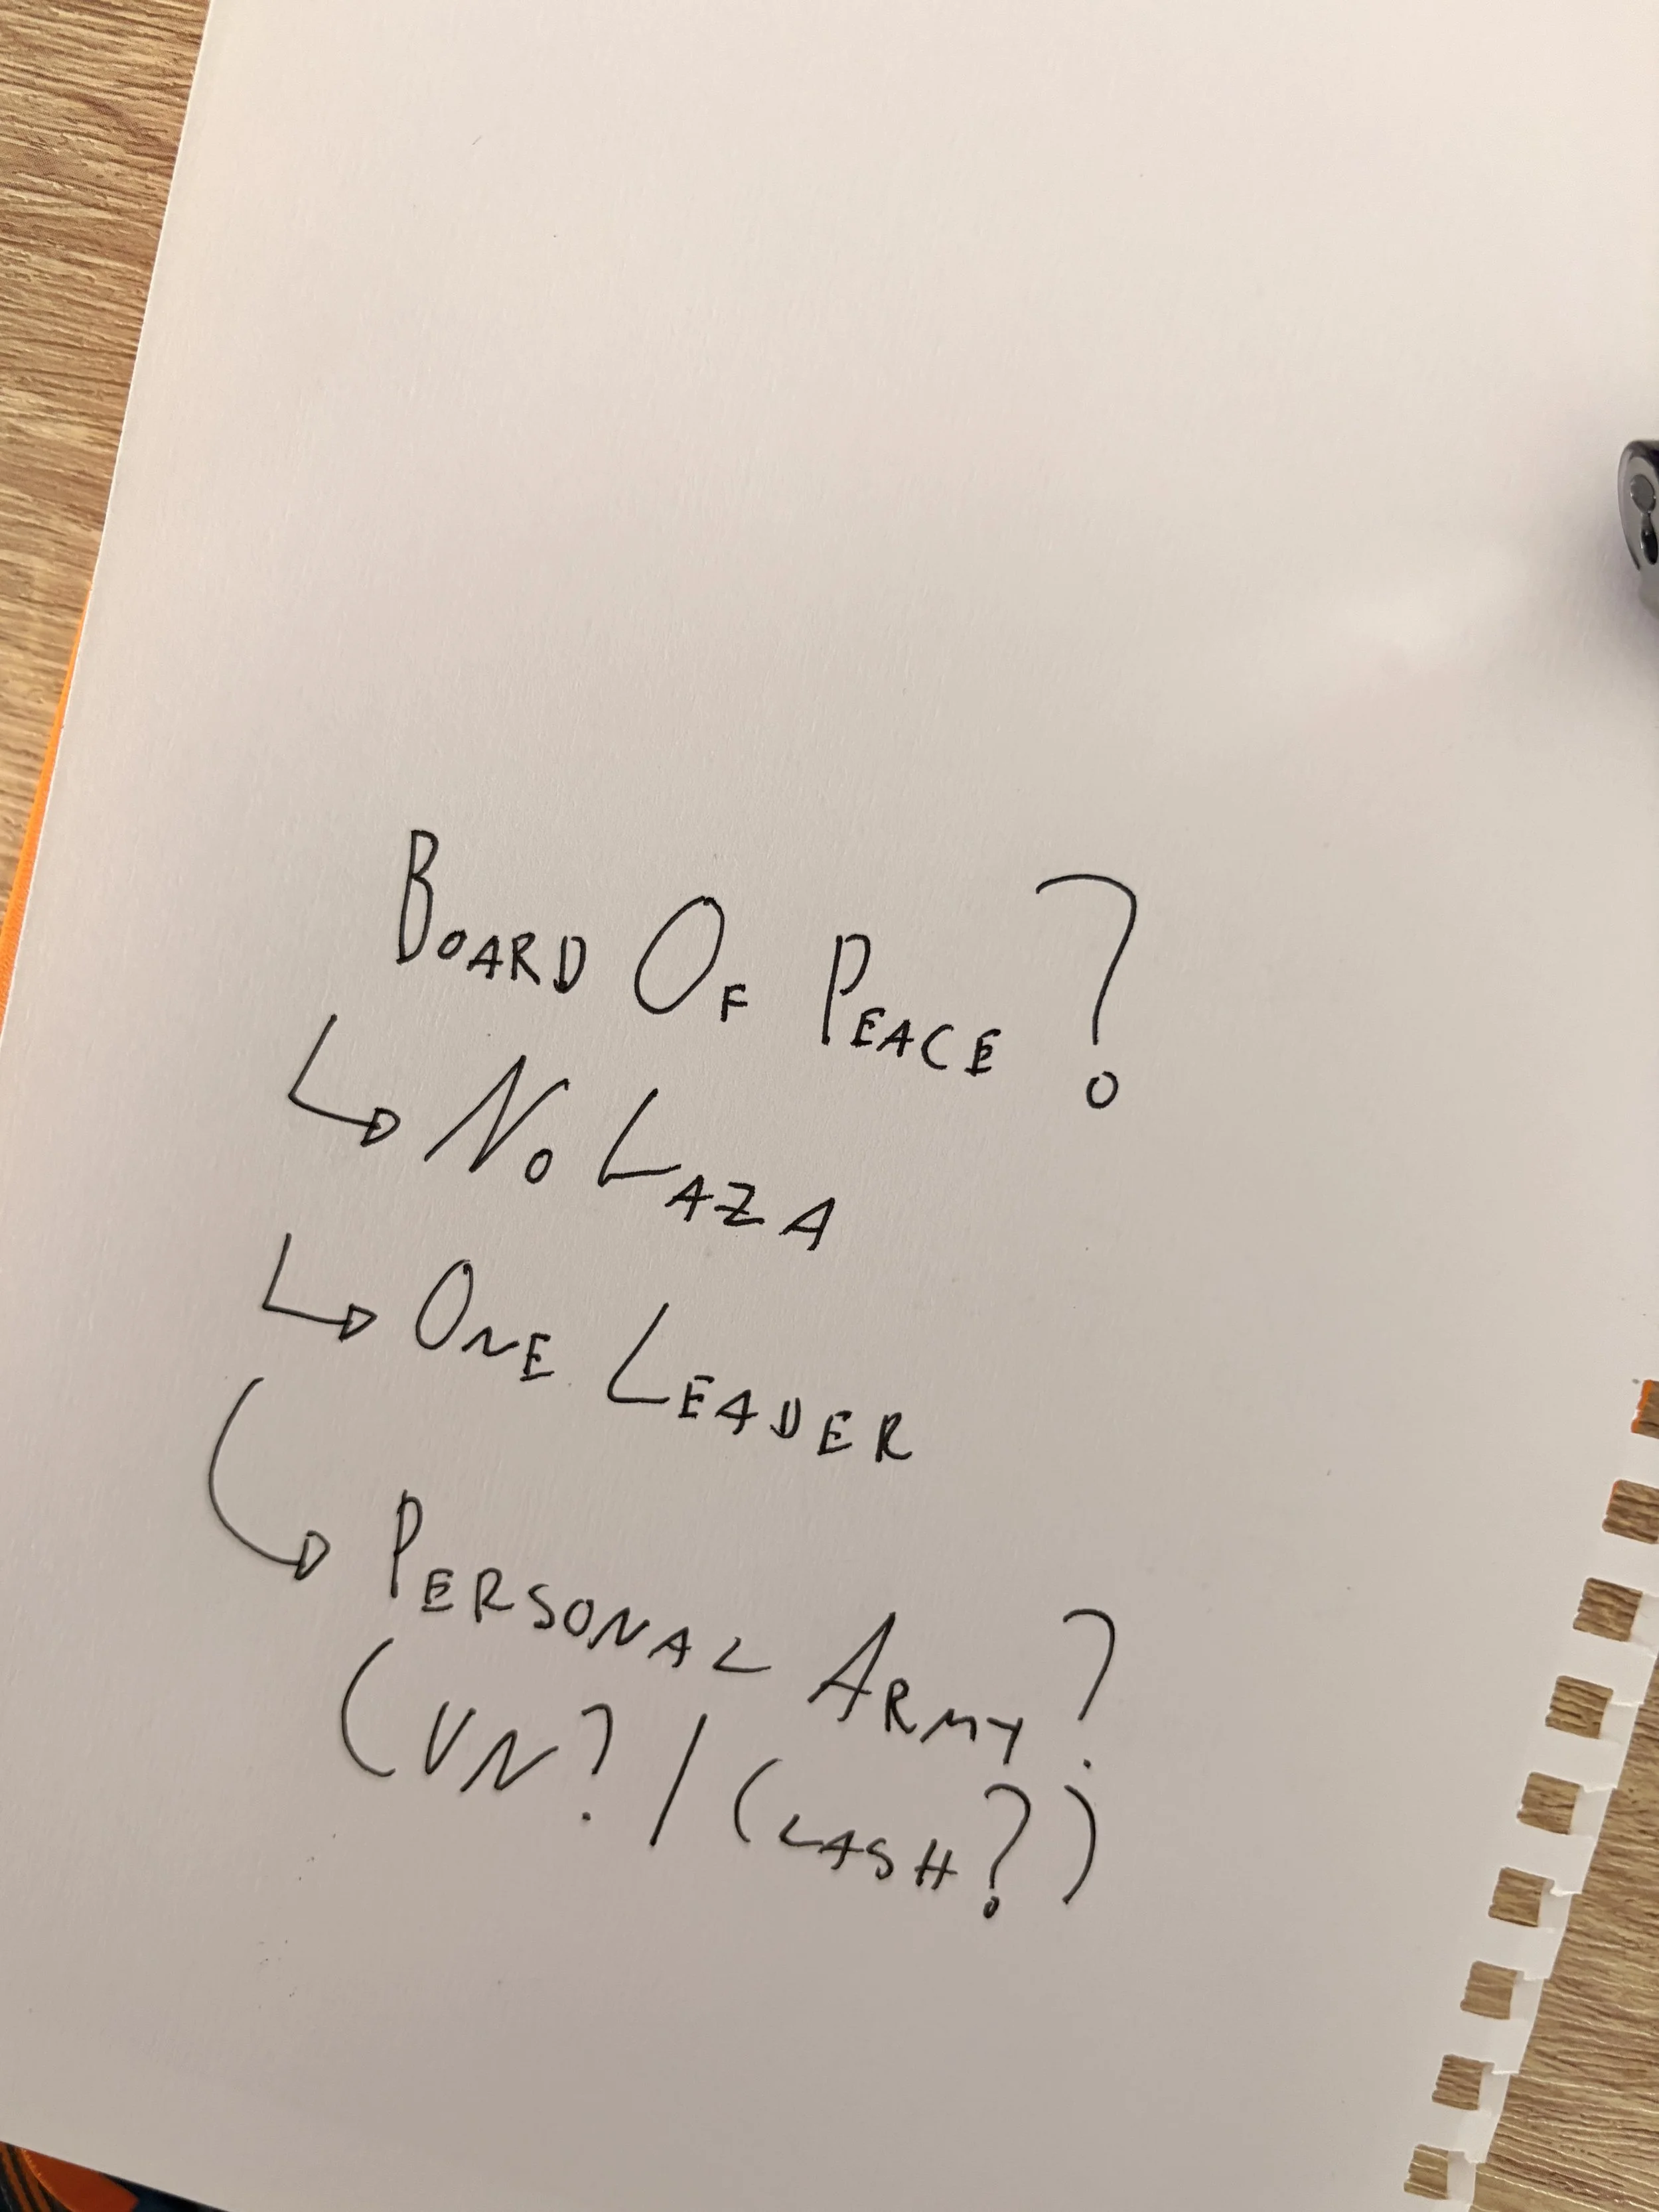 BOARD OF PEACE?
↳ NO LAZA
↳ ONE LEADER
↳ PERSONAL ARMY?
(UN? / CLASH?)